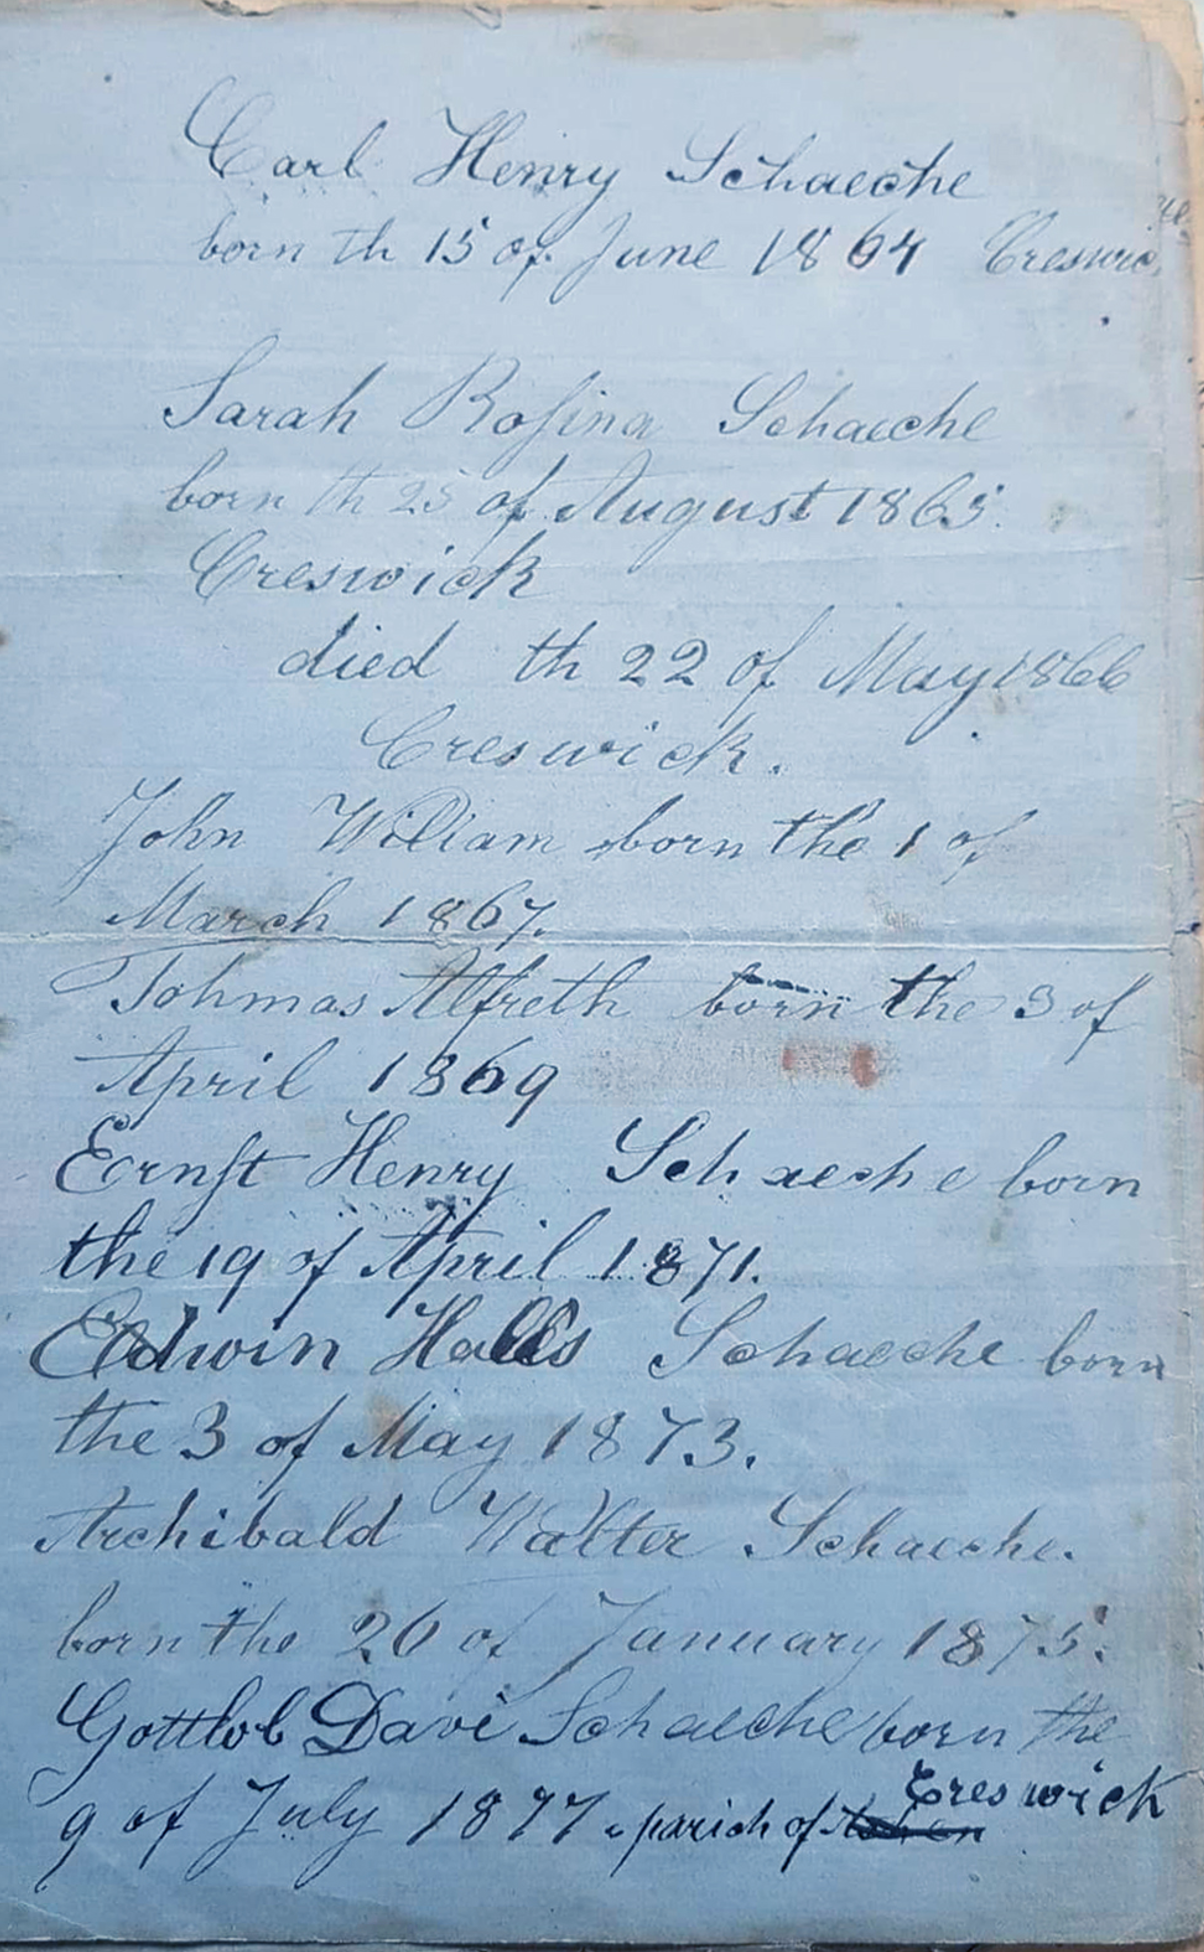 Carl Henry Schaeche
born th 15 of June 1864 Creswic
Sarah Rosina Schaeche
born th 25 of August 1865.
Creswick
died th 22 of May 1866
Creswick.
John William born the 1 of
March 1867.
Tohmas Alfreth born the 3 of
April 1869
Ernst Henry Schaeche born
the 19 of April 1871.
Edwin Halls Schaeche born
the 3 of May 1873.
Archibald Walter Schaeche.
born the 26 of January 1875.
Gottlob Davi Schaeche born the
9 of July 1877. parich of Creswick